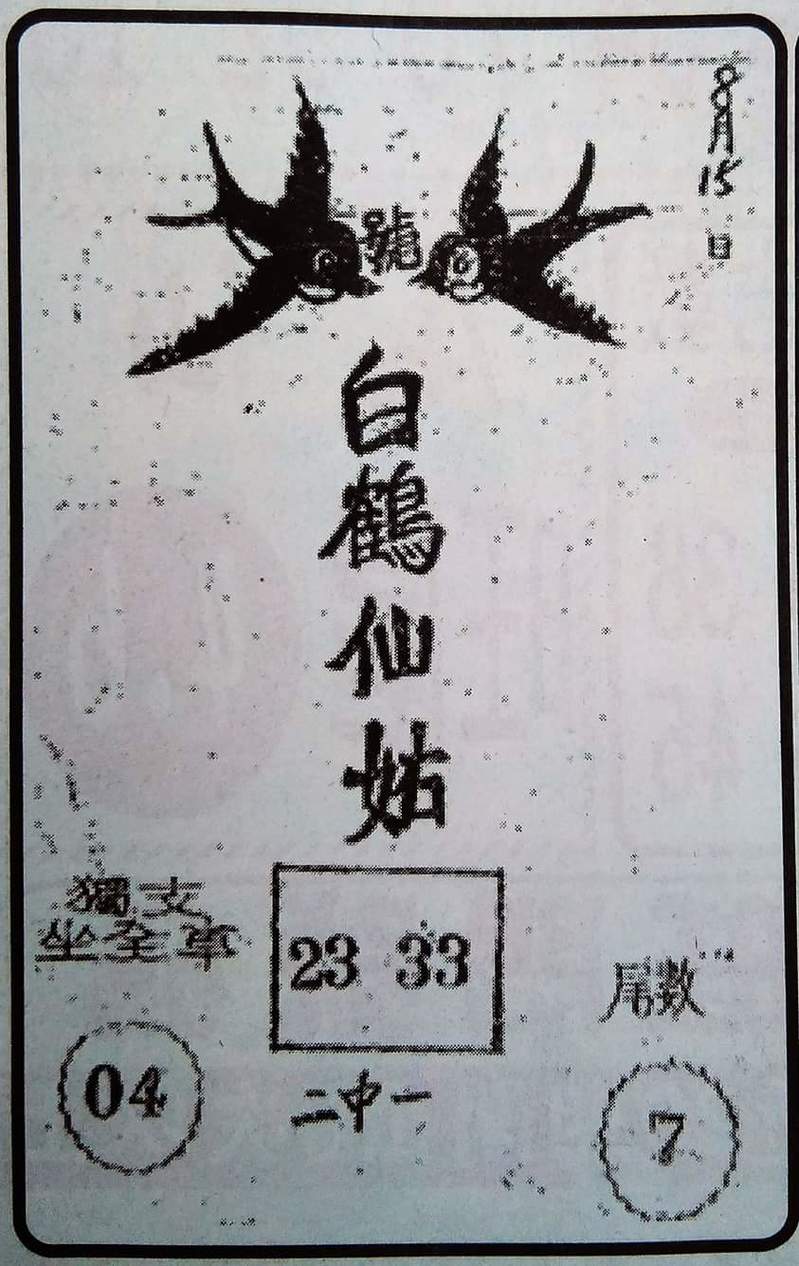 8月15日
號
白鶴仙姑
獨支
坐全車
04
23 33
二中一
尾数
7